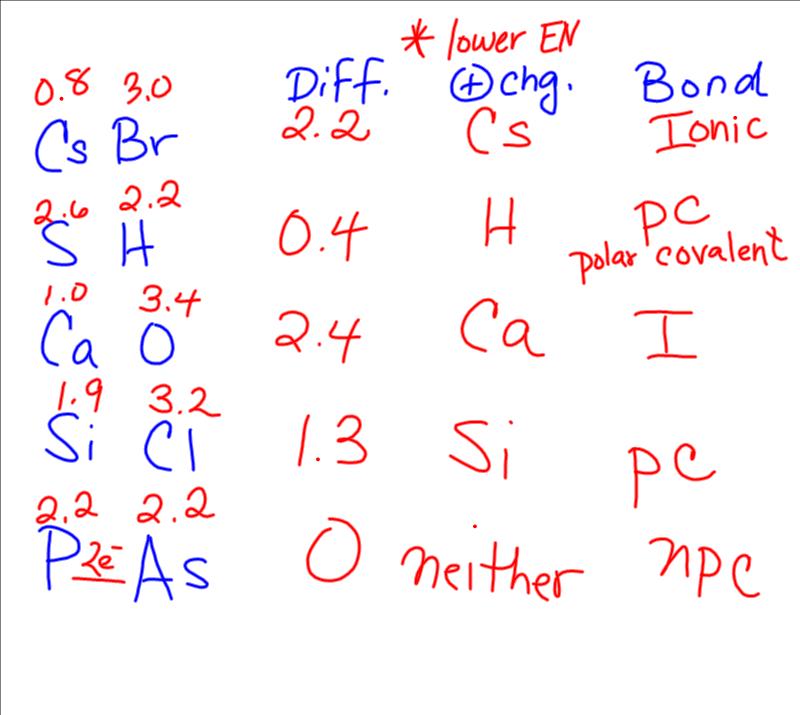 * lower EN
0.8 3.0 Diff. ⊕ chg. Bond
Cs Br 2.2 Cs Ionic
2.6 2.2
S H 0.4 H PC
polar covalent
1.0 3.4
Ca O 2.4 Ca I
1.9 3.2
Si Cl 1.3 Si PC
2.2 2.2
P 2e⁻ As 0 neither npc